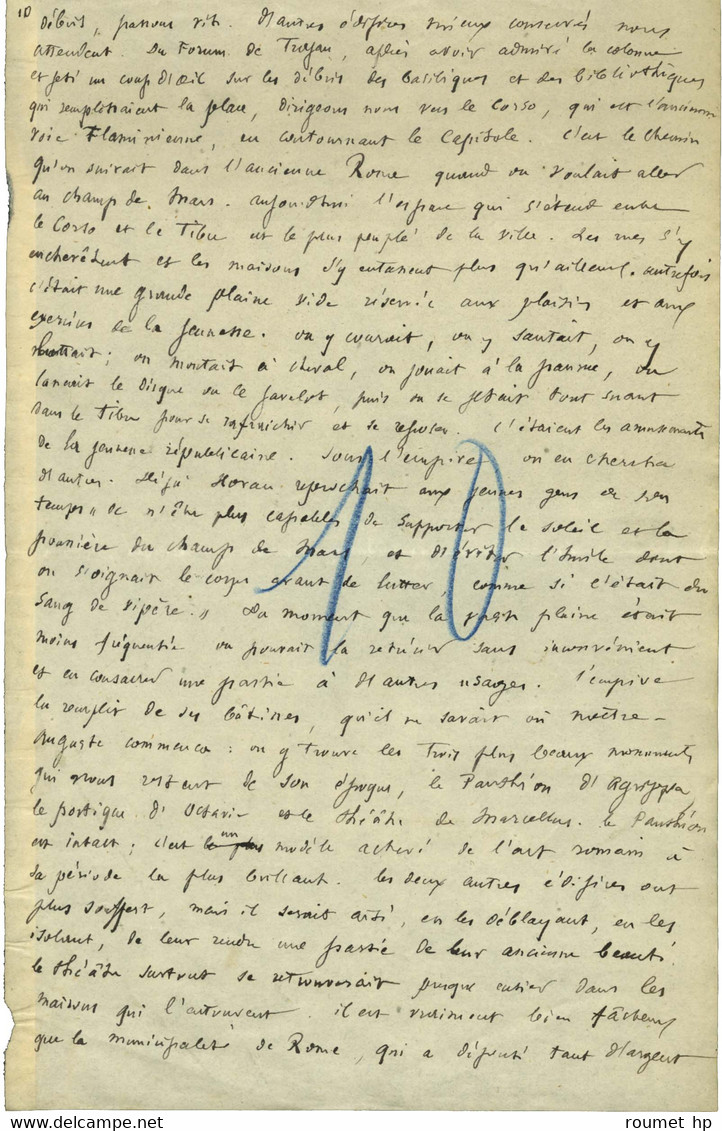 10
débris, passons vite. D'autres édifices mieux conservés nous
attendent. Du Forum de Trajan, après avoir admiré la colonne
et jeté un coup d'œil sur les débris des basiliques et des bibliothèques
qui remplissaient la place, dirigeons nous vers le Corso, qui est l'ancienne
voie Flaminienne, en contournant le Capitole. C'est le chemin
qu'on suivait dans l'ancienne Rome quand on voulait aller
au champ de Mars. Aujourd'hui l'espace qui s'étend entre
le Corso et le Tibre est le plus peuplé de la ville. Les rues s'y
enchevêtrent et les maisons s'y entassent plus qu'ailleurs. autrefois
c'était une grande plaine vide réservée aux plaisirs et aux
exercices de la jeunesse. on y courait, on y sautait, on y
luttait ; on montait à cheval, on jouait à la paume, on
lançait le disque ou le javelot, puis on se jetait tout suant
dans le Tibre pour se rafraichir et se reposer. C'étaient les amusements
de la jeunesse républicaine. Sous l'empire on en chercha
d'autres. Déjà Horace reprochait aux jeunes gens de son
temps "de n'être plus capables de supporter le soleil et la
poussière du champ de Mars, et d'éviter l'huile dont
on s'oignait le corps avant de lutter, comme si c'était du
sang de vipère." Du moment que la vaste plaine était
moins fréquentée on pouvait la réduire sans inconvénient
et en consacrer une partie à d'autres usages. L'empire
la remplit de ses bâtisses, qu'il ne savait où mettre.
Auguste commença : on y trouve les trois plus beaux monuments
qui nous restent de son époque, le Panthéon d'Agrippa,
le portique d'Octavie et le théâtre de Marcellus. le Panthéon
est intact ; c'est un modèle achevé de l'art romain à
sa période la plus brillante. les deux autres édifices ont
plus souffert, mais il serait aisé, en les déblayant, en les
isolant, de leur rendre une partie de leur ancienne beauté.
le théâtre surtout se retrouverait presque entier dans les
maisons qui l'entourent. il est vraiment bien fâcheux
que la municipalité de Rome, qui a dépensé tant d'argent
10
roumet hp